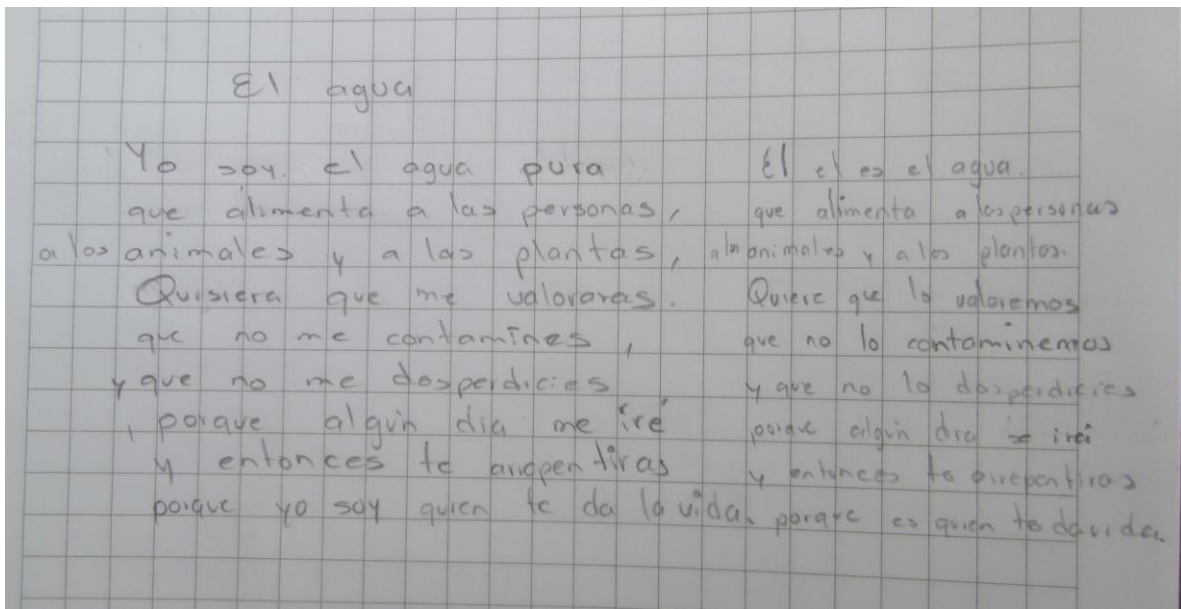 El agua
Yo soy. el agua pura
que alimenta a las personas,
a los animales y a las plantas,
Quisiera que me valoraras.
que no me contamines,
y que no me desperdicies
, porque algún dia me iré
y entonces te arrepentiras
porque yo soy quien te da la vida.
El el es el agua.
que alimenta a las personas
a los animales y a las plantas.
Quiere que lo valoremos
que no lo contaminemos
y que no lo desperdicies
porque algun dia se irá
y entonces te arrepentiras
porque es quien te da vida.